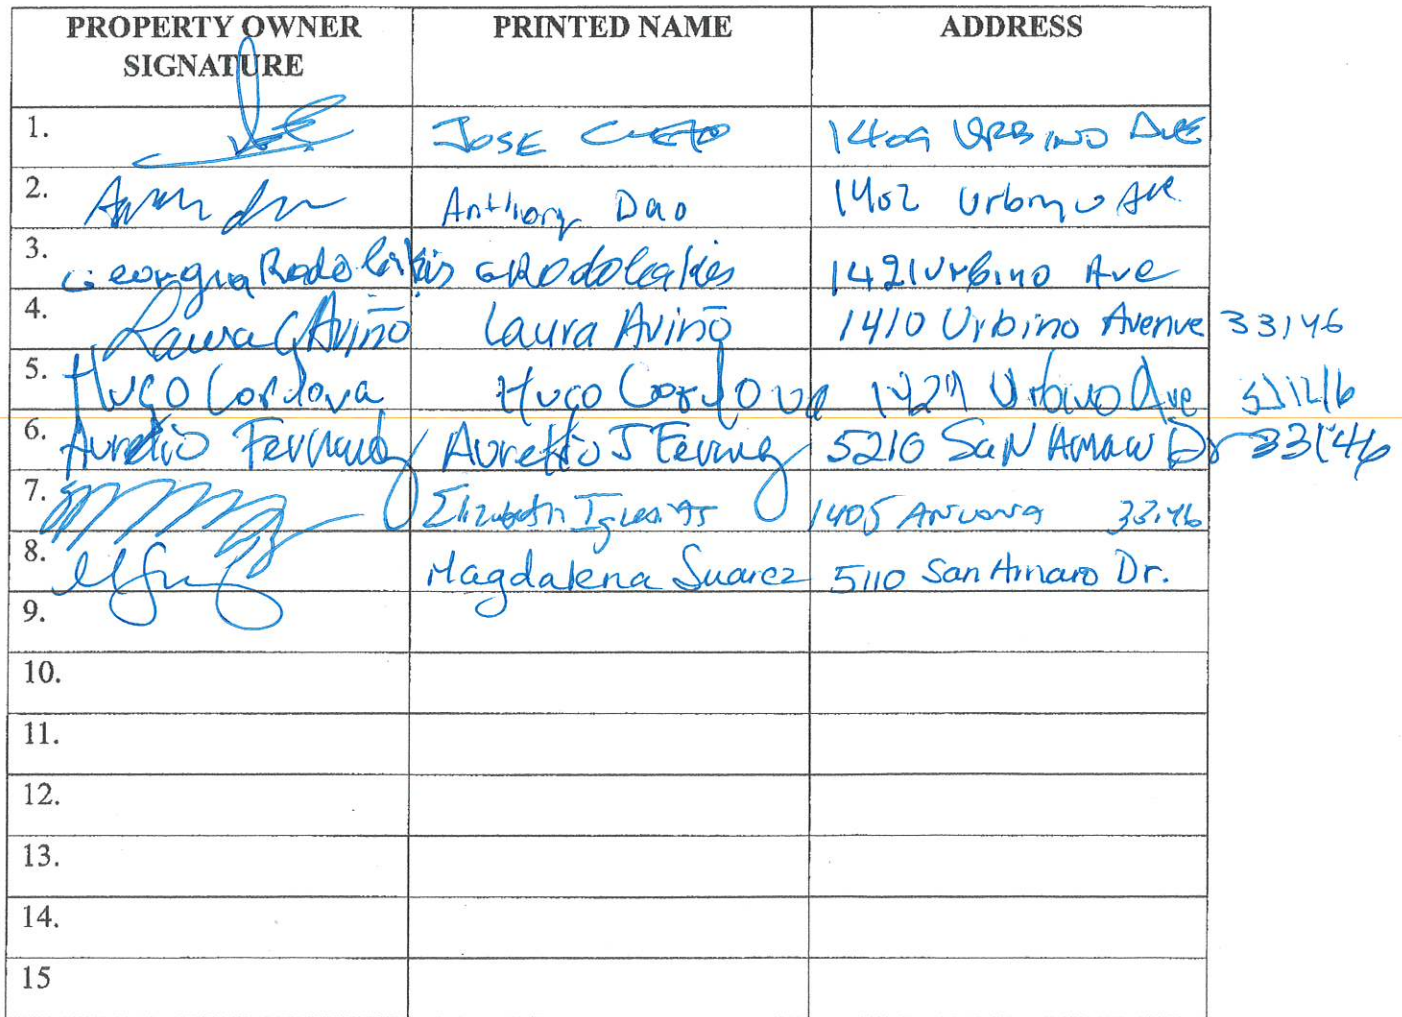 PROPERTY OWNER SIGNATURE PRINTED NAME ADDRESS
1. JOSE CUETO 1409 URBINO AVE
2. Anthony Dao 1402 Urbino Ave
3. Georgia Rodolakis GRodolakis 1421 Urbino Ave
4. Laura G Aviñó Laura Aviñó 1410 Urbino Avenue 33146
5. Hugo Cordova Hugo Cordova Urbino Ave
6. Aurelio Aurelio J 5210 San Amaro Dr 33146
7. Elizabeth Iglesias 1405 33146
8. Magdalena Suarez 5110 San Amaro Dr.
9.
10.
11.
12.
13.
14.
15